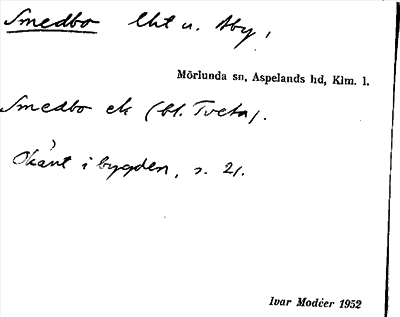 Smedbo lht u. Åby,
Mörlunda sn, Aspelands hd, Klm. l.
Smedbo ek (bl. Tveta).
Okänt i bygden, s. 21.
Ivar Modéer 1952